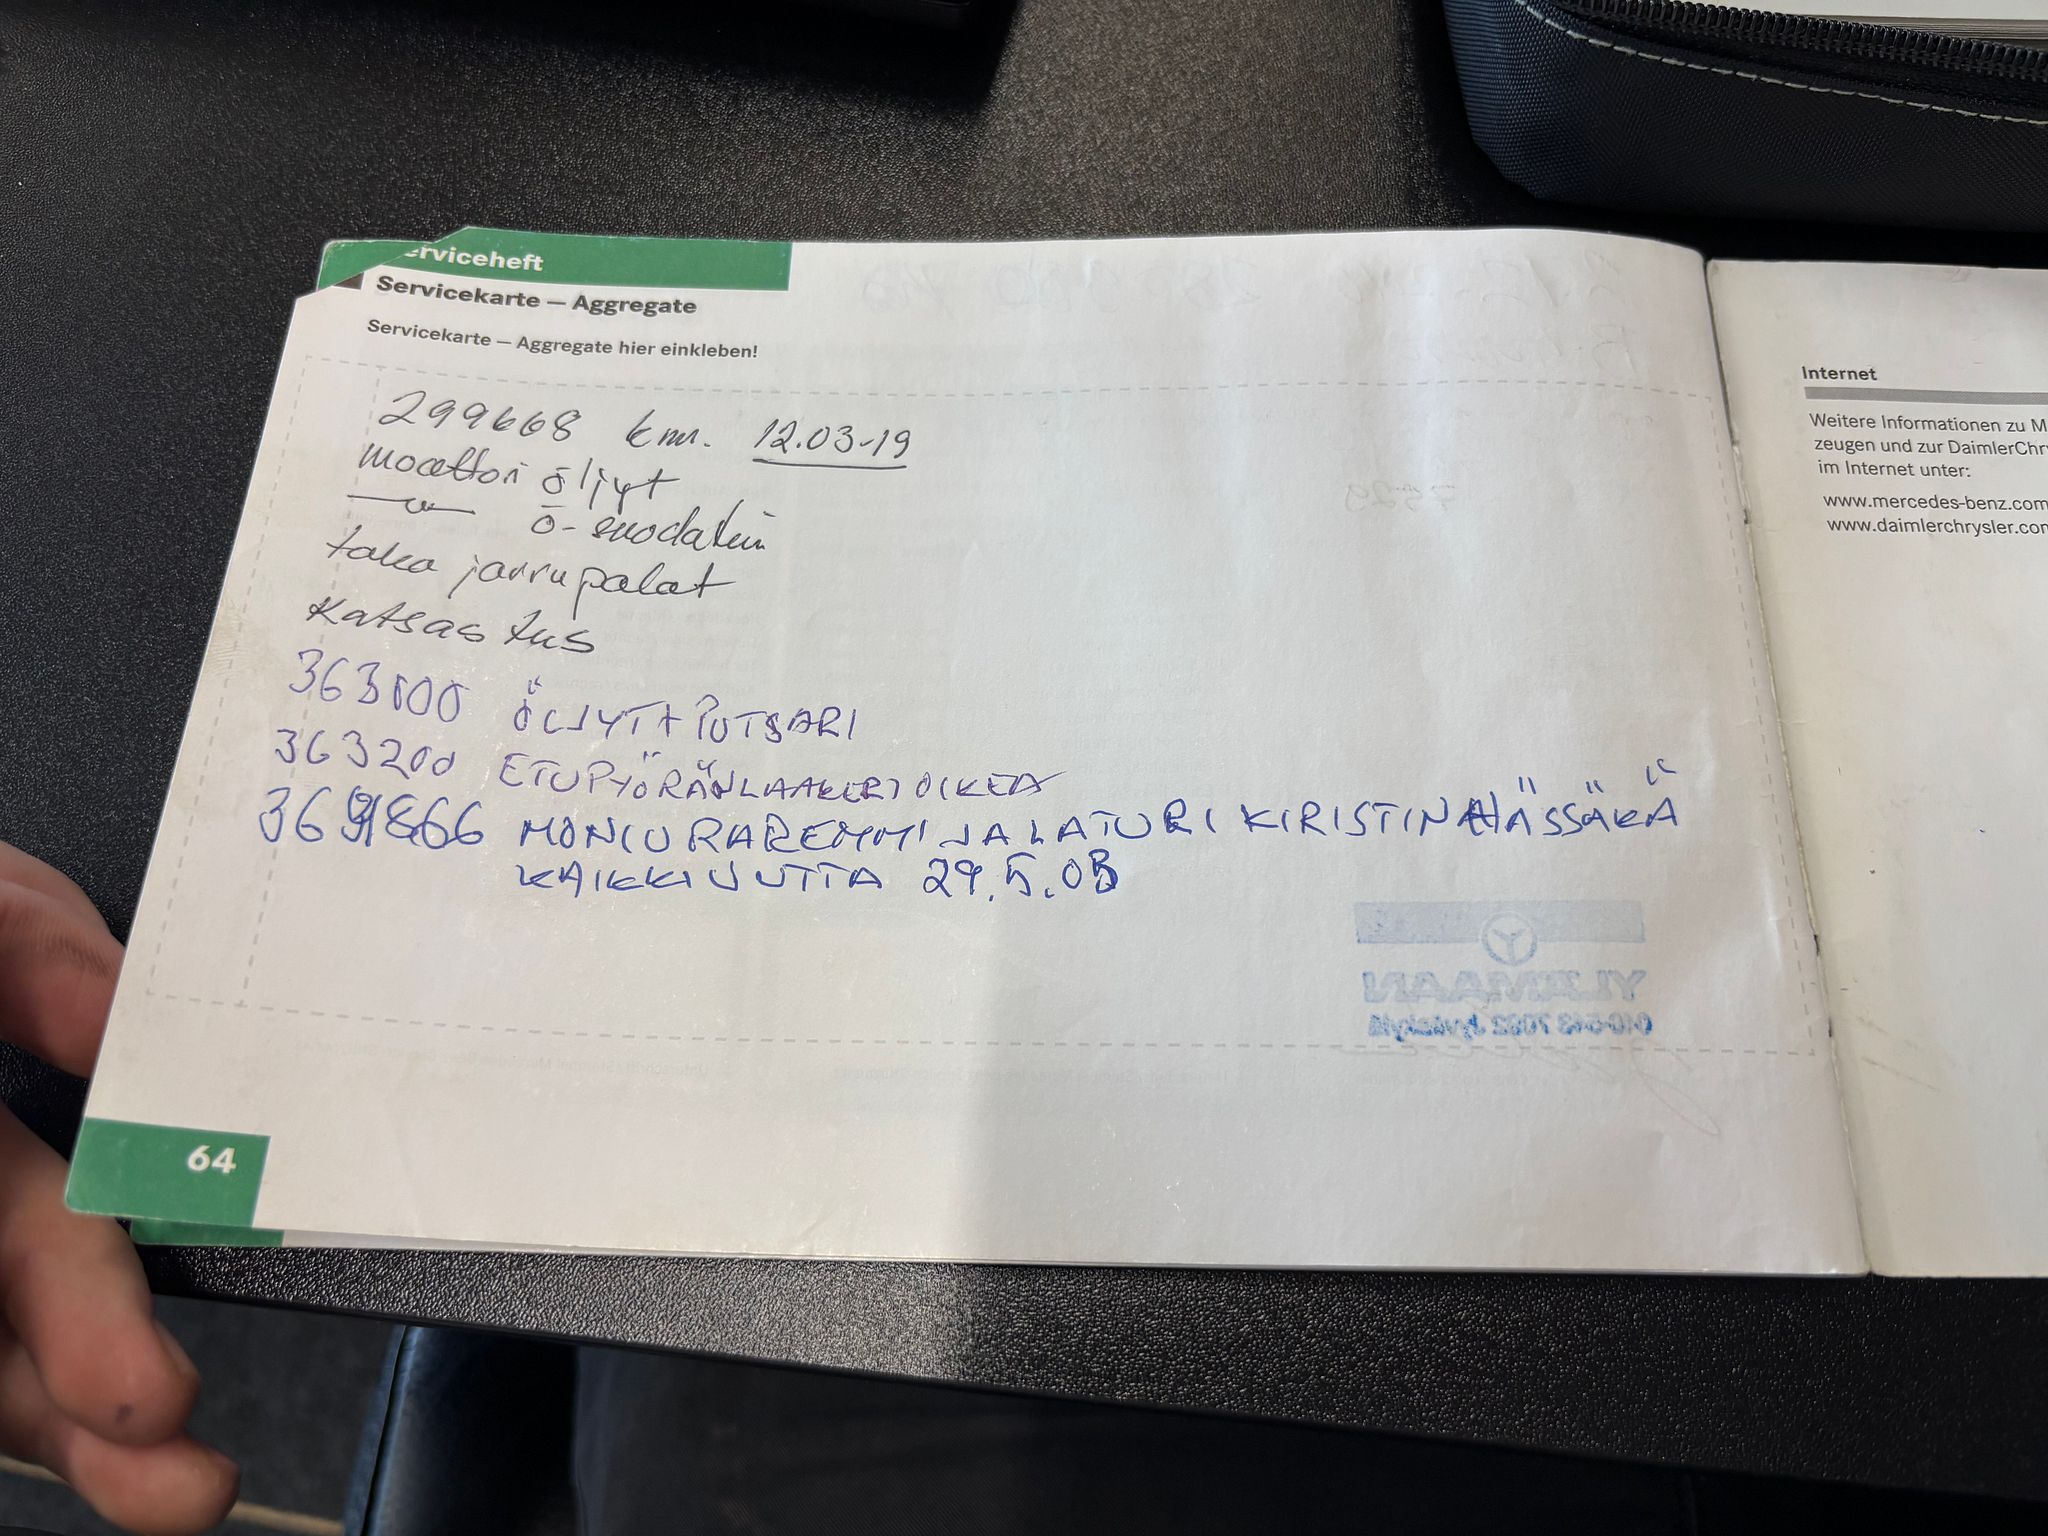 erviceheft
Servicekarte — Aggregate
Servicekarte — Aggregate hier einkleben!
299668 km. 12.03-19
moottori öljyt
—〃— ö-suodatin
taka jarrupalat
Katsastus
363100 ÖLJYT+PUTSARI
363200 ETUPYÖRÄNLAAKERI OIKEA
MONIURAREMMI JA LATURI KIRISTIN HÄSSÄKÄ
KAIKKI UUTTA 29.5.
YLÄMAAN
010-543 7092 Jyväskylä
64
Internet
Weitere Informationen zu M
zeugen und zur DaimlerChr
im Internet unter:
www.mercedes-benz.com
www.daimlerchrysler.co